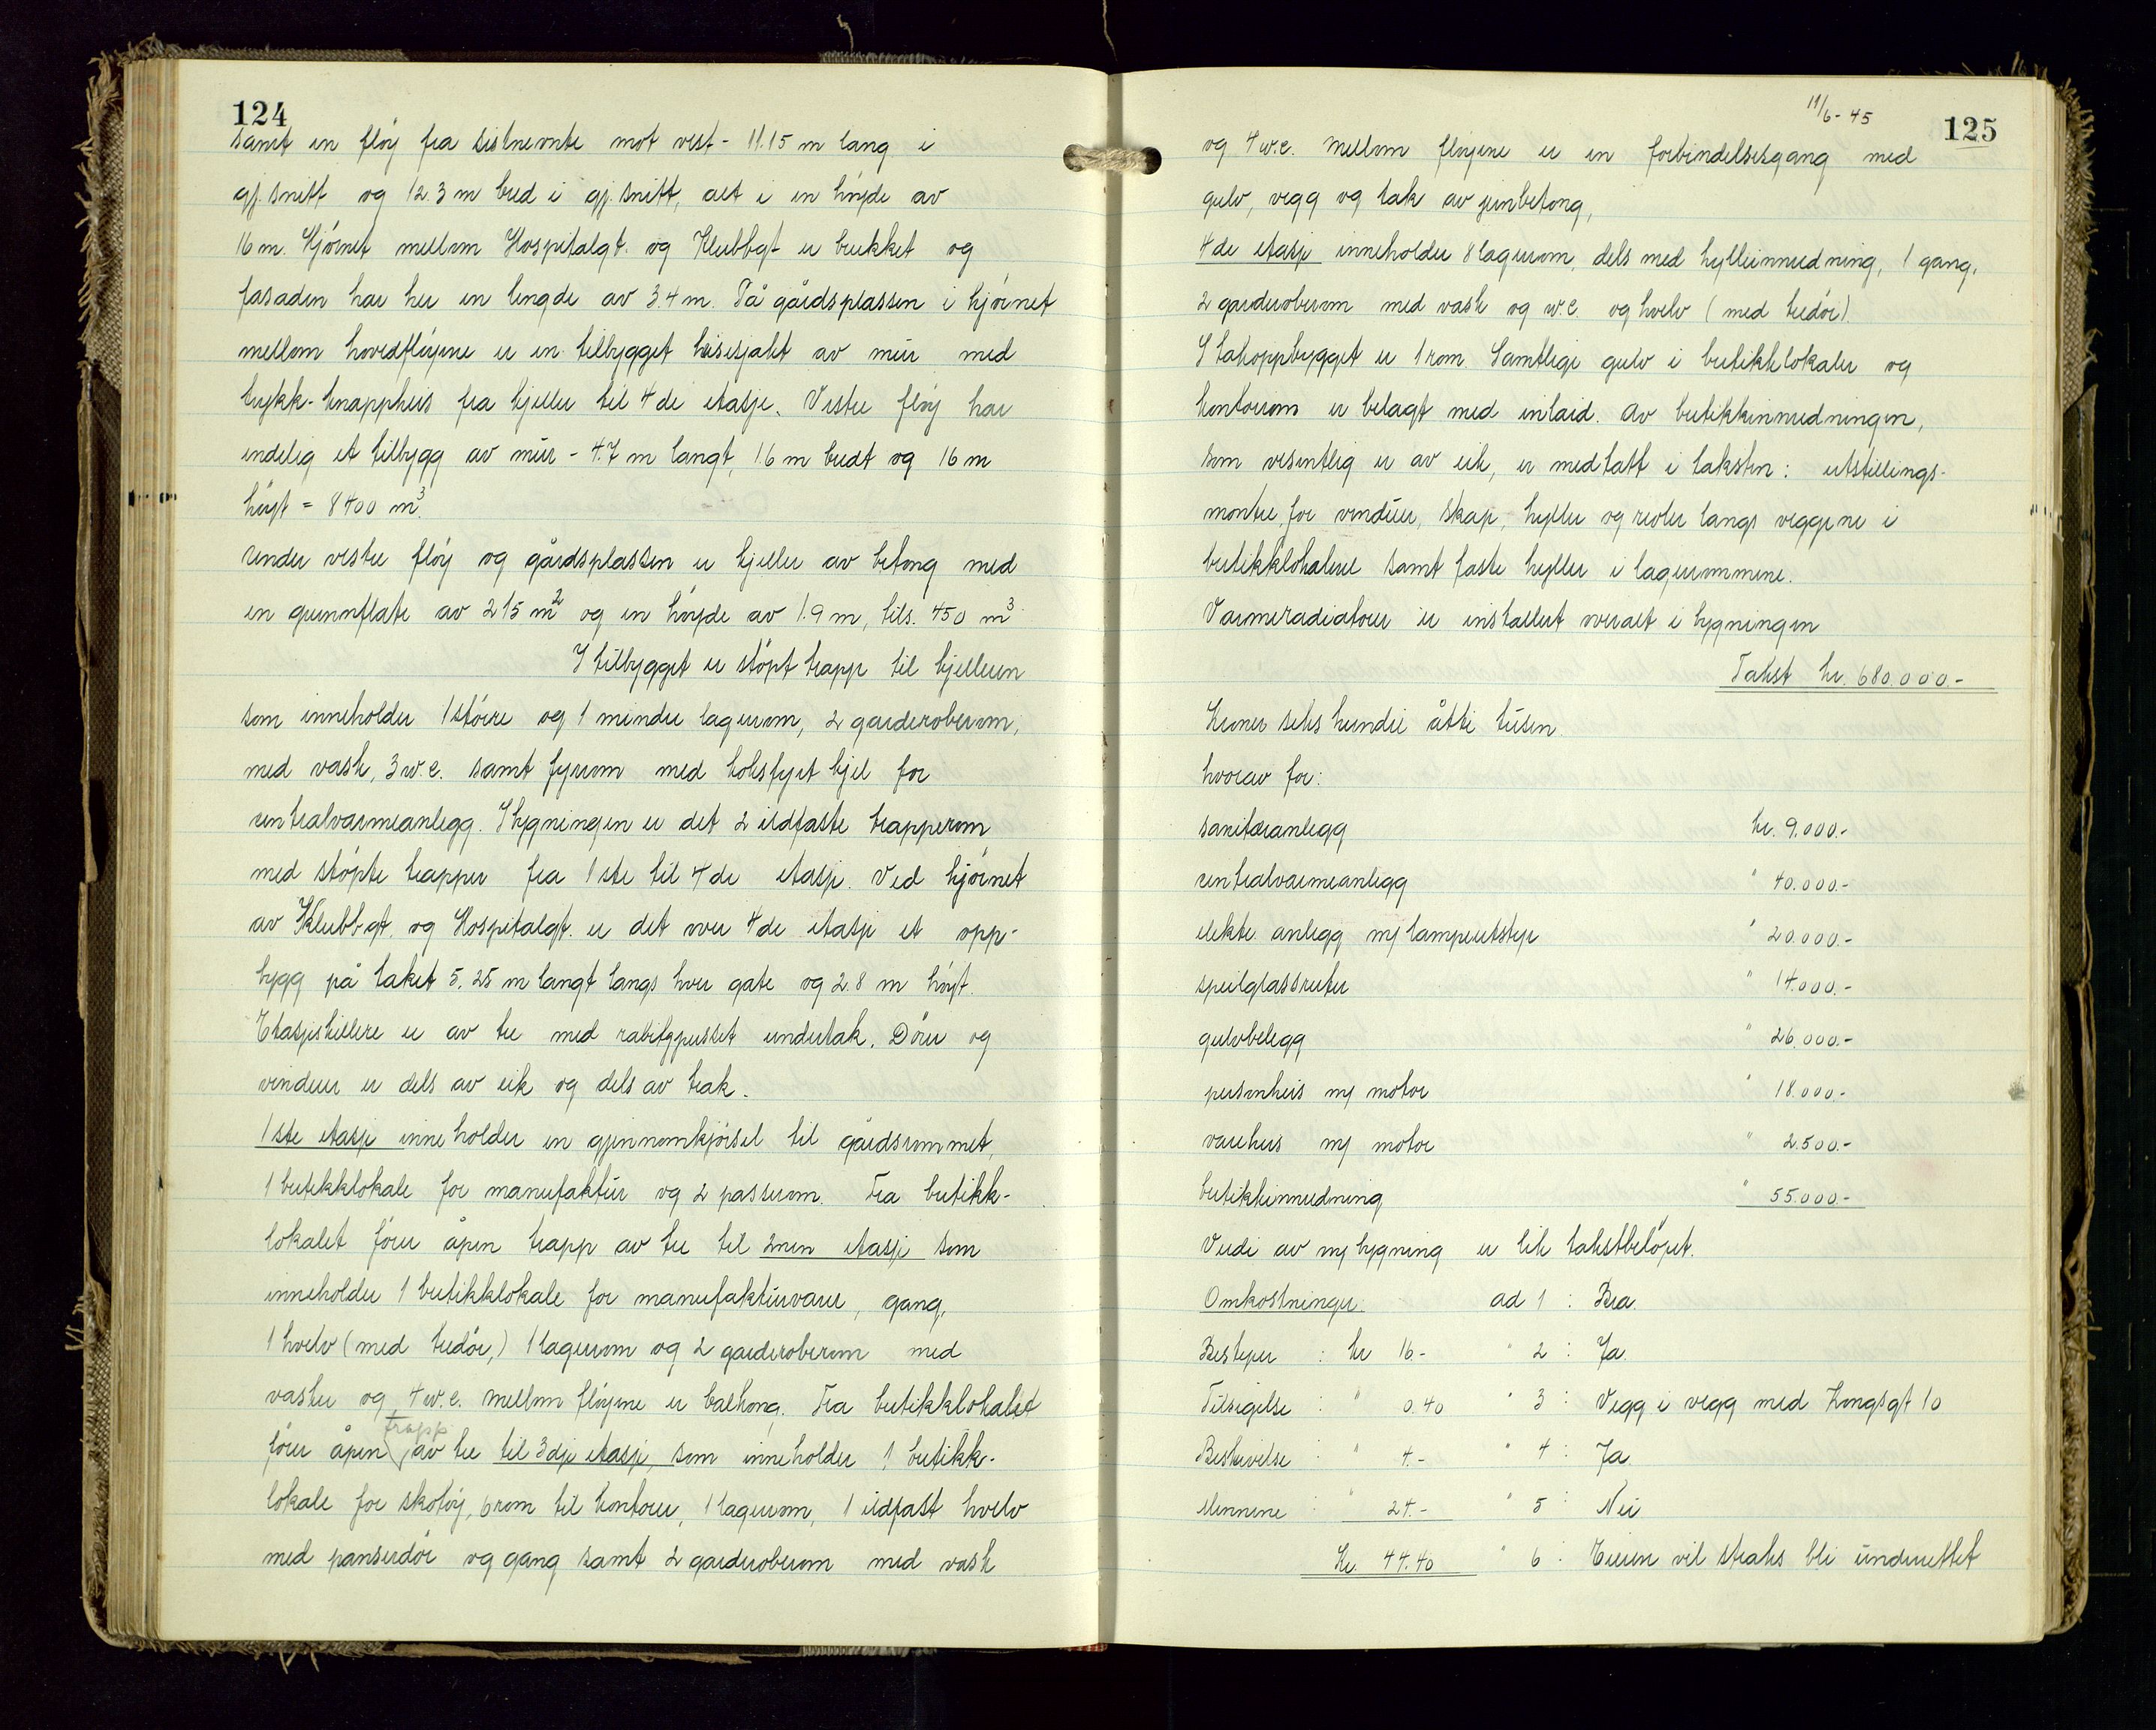 124
samt en fløy fra sistnevnte mot vest - 11.15 m lang i
gj. snitt og 12.3 m bred i gj. snitt, alt i en høyde av
16 m. Hjørnet mellom Hospitalgt. og Klubbgt er brukket og
fasaden har her en lengde av 3.4 m. På gårdsplassen i hjørnet
mellom hovedfløyene er en tilbygget heissjakt av mur med
trykk-knappheis fra kjeller til 4de etasje. Vestre fløy har
endelig et tilbygg av mur - 4.7 m langt, 1.6 m bredt og 16 m
høyt = 8400 m³.
Under vestre fløy og gårdsplassen er kjeller av betong med
en grunnflate av 215 m² og en høyde av 1.9 m, tils. 450 m³
I tilbygget er støpt trapp til kjelleren
som inneholder 1 større og 1 mindre lagerrom, 2 garderoberom,
med vask, 3 w.c. samt fyrrom med koksfyrt kjel for
sentralvarmeanlegg. I bygningen er det 2 ildfaste trapperom
med støpte trapper fra 1ste til 4de etasje. Ved hjørnet
av Klubbgt. og Hospitalgt. er det over 4de etasje et opp-
bygg på taket 5.25 m langt langs hver gate og 2.8 m høyt.
Etasjeskillere er av tre med rabitzpusset undertak. Dører og
vinduer er dels av eik og dels av teak.
1ste etasje inneholder en gjennomkjørsel til gårdsrommet,
1 butikklokale for manufaktur og 2 passerom. Fra butikk-
lokalet fører åpen trapp av tre til 2nen etasje som
inneholder 1 butikklokale for manufakturvarer, gang,
1 hvelv (med tredør,) 1 lagerrom og 2 garderoberom med
vasker og 4 w.c. Mellom fløyene er balkong. Fra butikklokalet
trapp
fører åpen av tre til 3dje etasje, som inneholder 1 butikk-
lokale for skotøy, 6 rom til kontorer, 1 lagerrom, 1 ildfast hvelv
med panserdør og gang samt 2 garderoberom med vask
11/6-45
125
og 4 w.c. Mellom fløyene er en forbindelsesgang med
gulv, vegg og tak av jernbetong,
4de etasje inneholder 8 lagerrom, dels med hylleinnredning, 1 gang,
2 garderoberom med vask og w.c. og hvelv (med tredør).
I takoppbygget er 1 rom. Samtlige gulv i butikklokaler og
kontorrom er belagt med inlaid. Av butikkinnredningen,
som vesentlig er av eik, er medtatt i taksten: utstillings-
montre for vinduer, skap, hyller og reoler langs veggene i
butikklokalene samt faste hyller i lagerrommene.
Varmeradiatorer er installert overalt i bygningen
Takst kr. 680.000.-
Kroner seks hundre åtti tusen
hvorav for:
sanitæranlegg kr. 9.000.-
sentralvarmeanlegg " 40.000.-
elektr. anlegg m/ lampeutstyr " 20.000.-
speilglassruter " 14.000.-
gulvbelegg " 26.000.-
personheis m/ motor " 18.000.-
vareheis m/ motor " 2.500.-
butikkinnredning " 55.000.-
Verdi av ny bygning er lik takstbeløpet.
Omkostninger. ad 1 : Bra.
Bestyrer : kr 16.- " 2 : Ja.
Tilsigelse : " 0.40 " 3 : Vegg i vegg med Kongsgt 10
Beskrivelse : " 4.- " 4 : Ja
Mennene : " 24.- " 5 : Nei
Kr. 44.40 " 6 : Eieren vil straks bli underrettet